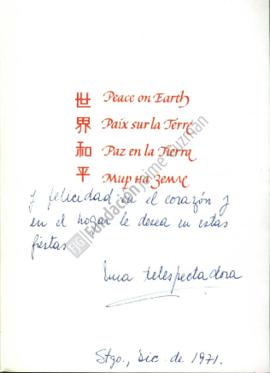 世 Peace on Earth
界 Paix sur la Terre
和 Paz en la Tierra
平 Мир на Земле
y felicidad en el corazón y
en el hogar le desea en estas
fiestas
Una telespectadora
Stgo., Dic. de 1971.
Fundación Jaime Guzmán